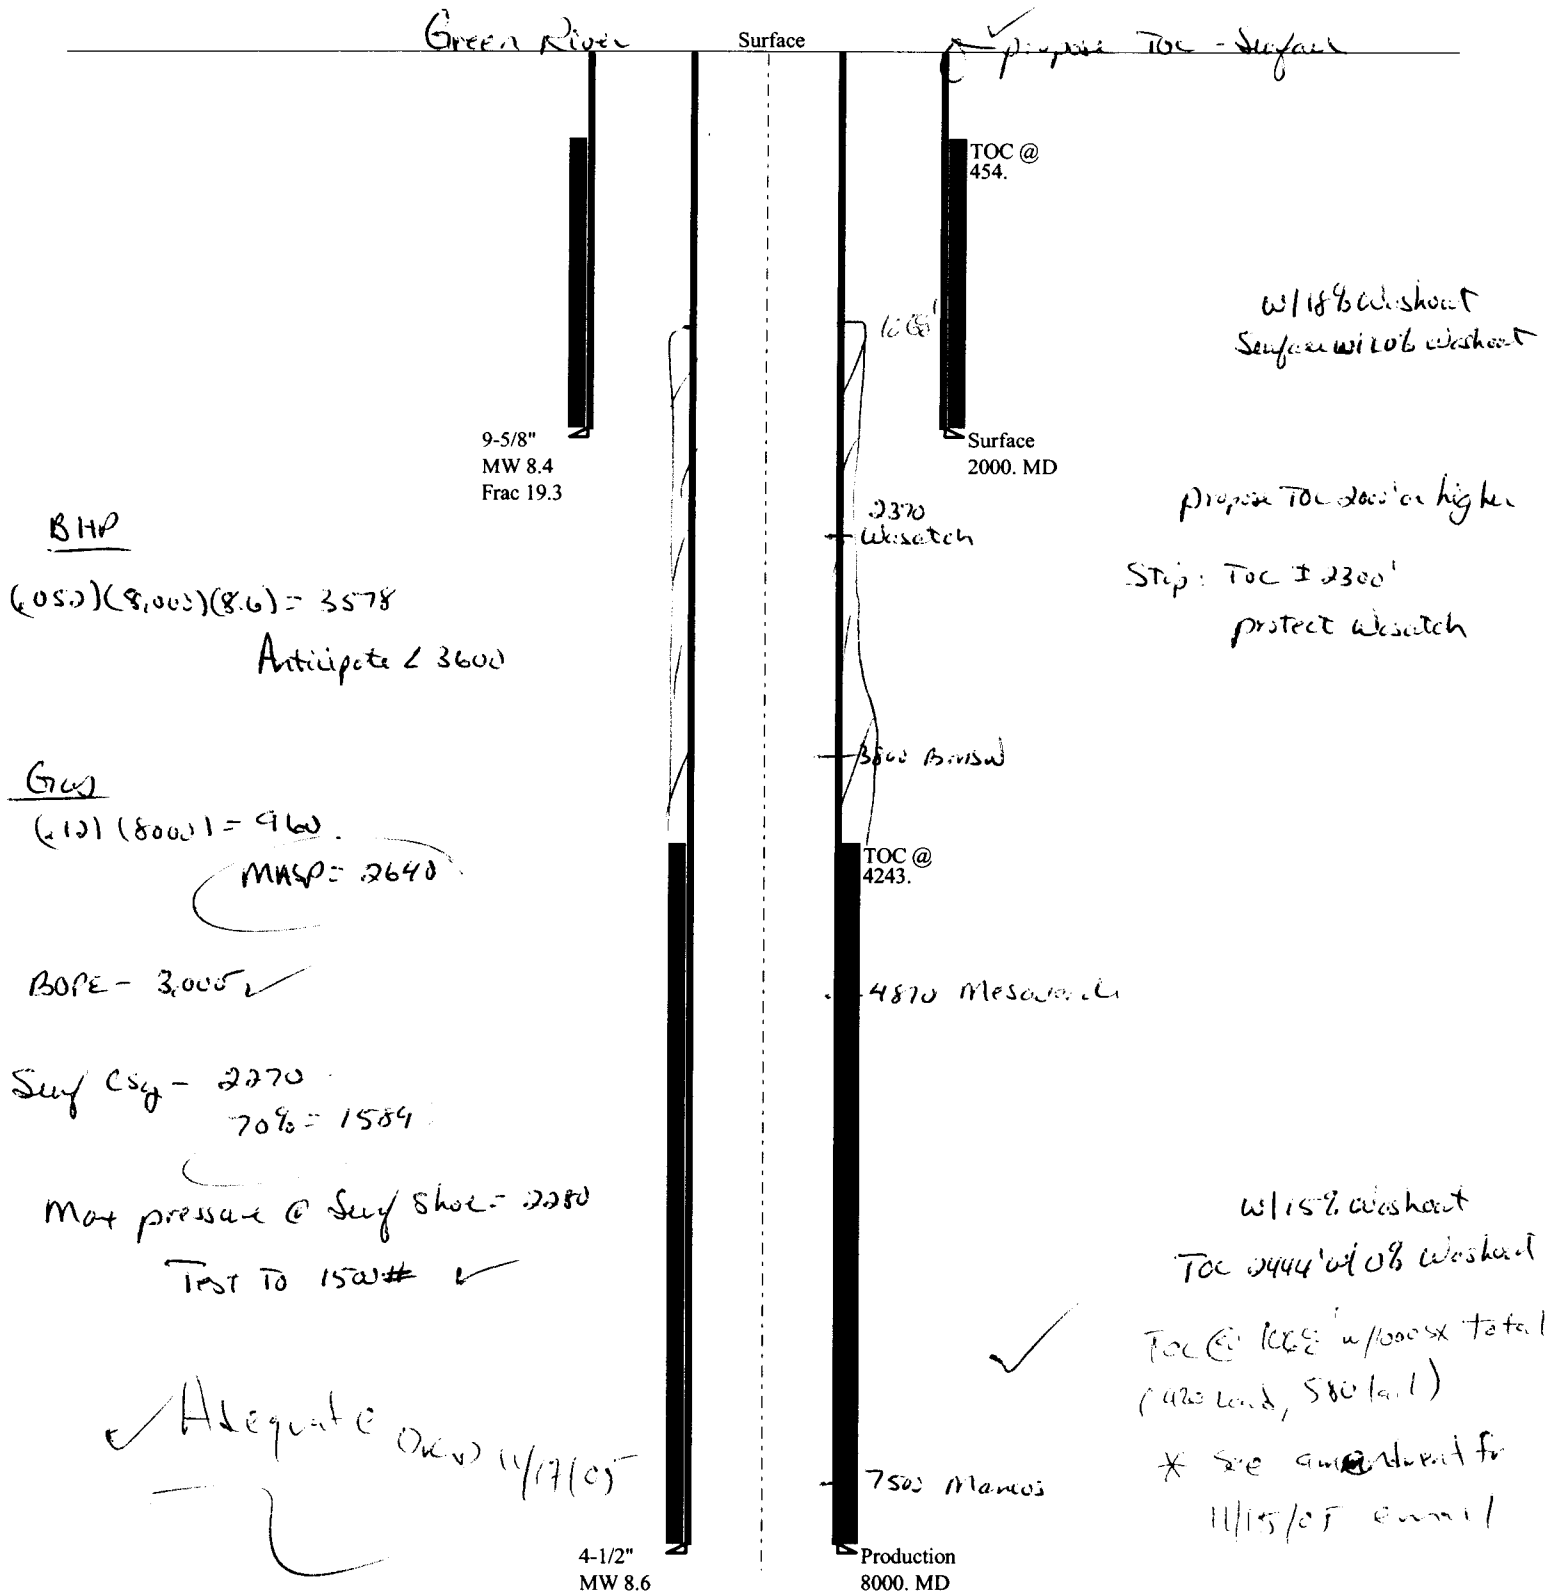 Green River
Surface
propose TOC - Surface
TOC @
454.
w/18% Washout
Surface w/ 0% washout
9-5/8"
MW 8.4
Frac 19.3
Surface
2000. MD
2370
Wasatch
propose TOC 2000' or higher
Stip: TOC ± 2300'
protect Wasatch
BHP
(.052)(8,000)(8.6) = 3578
Anticipate < 3600
3800
Gas
(.12)(8000) = 960
MASP = 2640
TOC @
4243.
BOPE - 3,000 ✓
4870 Mesaverde
Surf Csg - 2270
70% = 1589
Max pressure @ Surf Shoe = 2280
Test To 1500# ✓
w/15% Washout
TOC 2444' w/ 0% Washout
TOC @ w/1000 sx total
(420 Lead, 580 tail)
* See amendment fr
11/15/05 email
✓ Adequate 11/17/05
7500 Mancos
4-1/2"
MW 8.6
Production
8000. MD